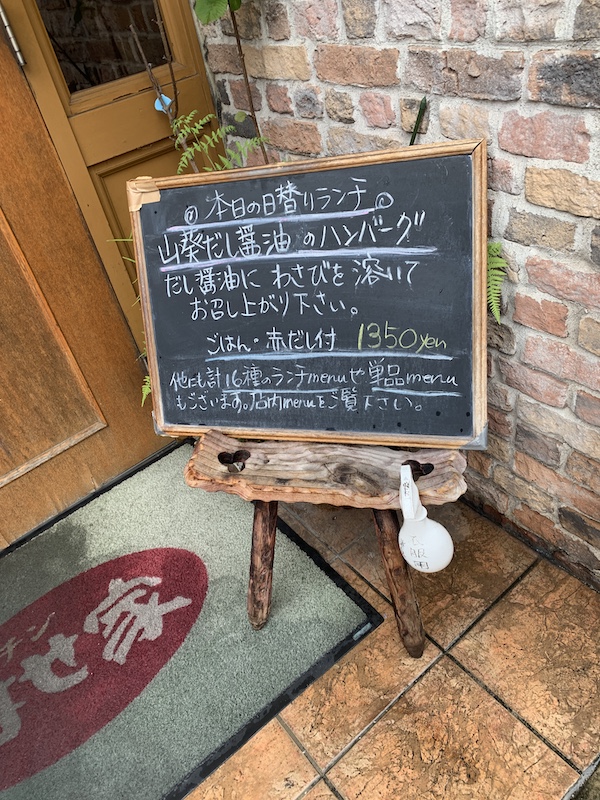 本日の日替りランチ
山葵だし醤油のハンバーグ
だし醤油にわさびを溶いて
お召し上がり下さい。
ごはん・赤だし付 1350yen
他にも計16種のランチmenuや単品menu
もございます。店内menuをご覧下さい。
チン
せ家